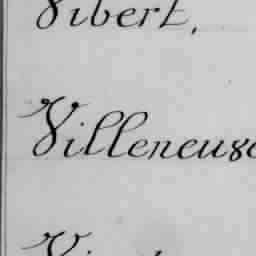 Vibert,
Villeneuse